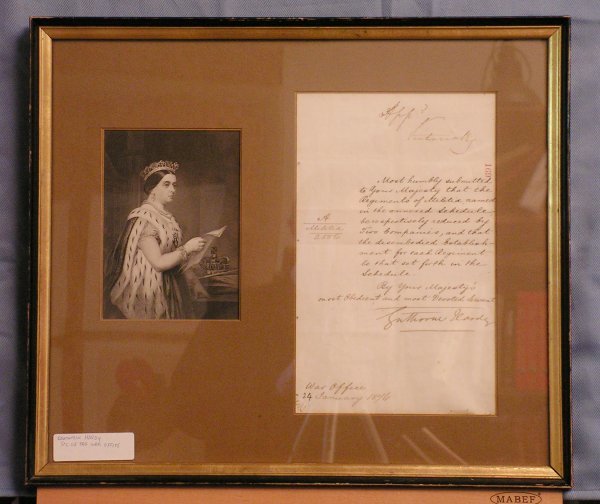 App.d
Victoria R
Most humbly submitted
to Your Majesty that the
Regiments of Militia named
in the annexed Schedule
be respectively reduced by
Two Companies, and that
the disembodied Establish-
ment for each Regiment
to that set forth in the
Schedule
By Your Majesty's
most Obedient and most Devoted Servant
Gathorne Hardy
A
Militia
War Office
24 January 1876
GATHORNE HARDY
SEC OF THE WAR OFFICE
MABEF